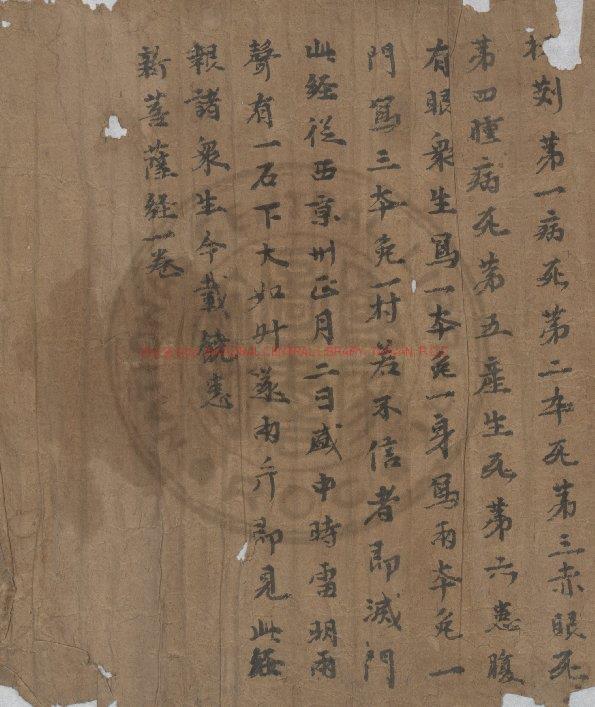 劫第一病死第二卒死第三赤眼死
第四腫病死第五產生死第六患腹
有眼衆生寫一本免一身寫兩本免一
門寫三本免一村若不信者即滅門
此經從西京州正月二日盛中時雷明雨
聲有一石下大如斗遂兩片即見此經
報諸衆生今載饒患
新菩薩經一卷